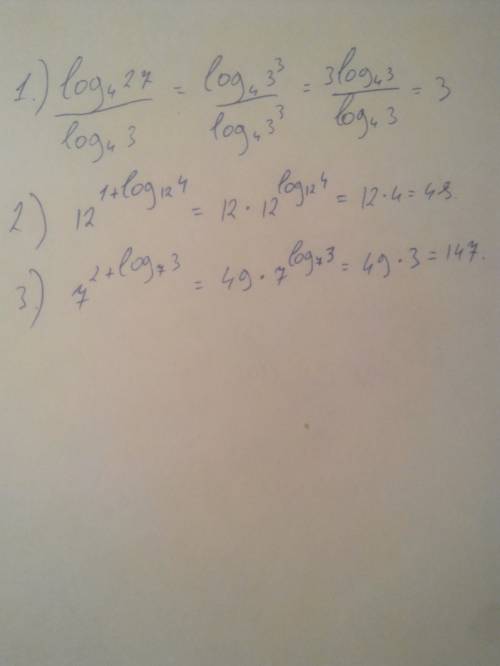 1.) log₄27/log₄3 = log₄3³/log₄3³ = 3log₄3/log₄3 = 3
2) 12^(1+log₁₂4) = 12 · 12^(log₁₂4) = 12·4 = 48.
3.) 7^(2+log₇3) = 49 · 7^(log₇3) = 49 · 3 = 147.